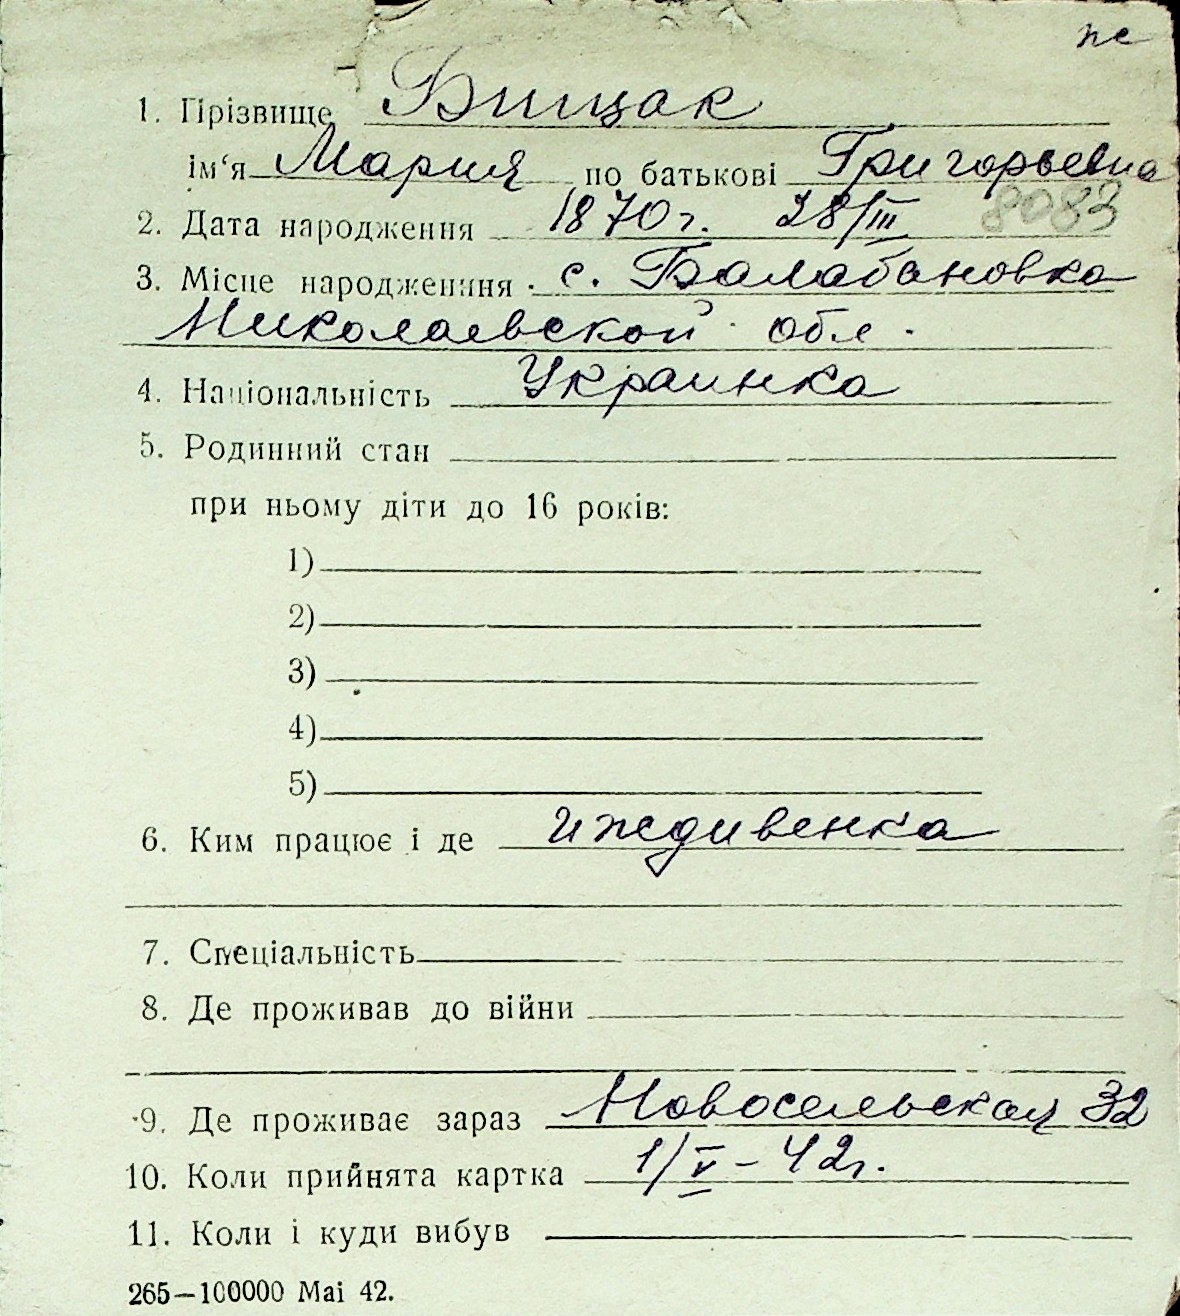 пс
1. Прізвище Бищак
ім‘я Мария по батькові Григорьевна
2. Дата народження 1870 г. 28/III 8083
3. Місце народженння с. Балабановка
Николаевской обл.
4. Національність Украинка
5. Родинний стан
при ньому діти до 16 років:
1)
2)
3)
4)
5)
6. Ким працює і де иждивенка
7. Спеціальність
8. Де проживав до війни
9. Де проживає зараз Новосельская 32
10. Коли прийнята картка 1/V – 42 г.
11. Коли і куди вибув
265—100000 Mai 42.